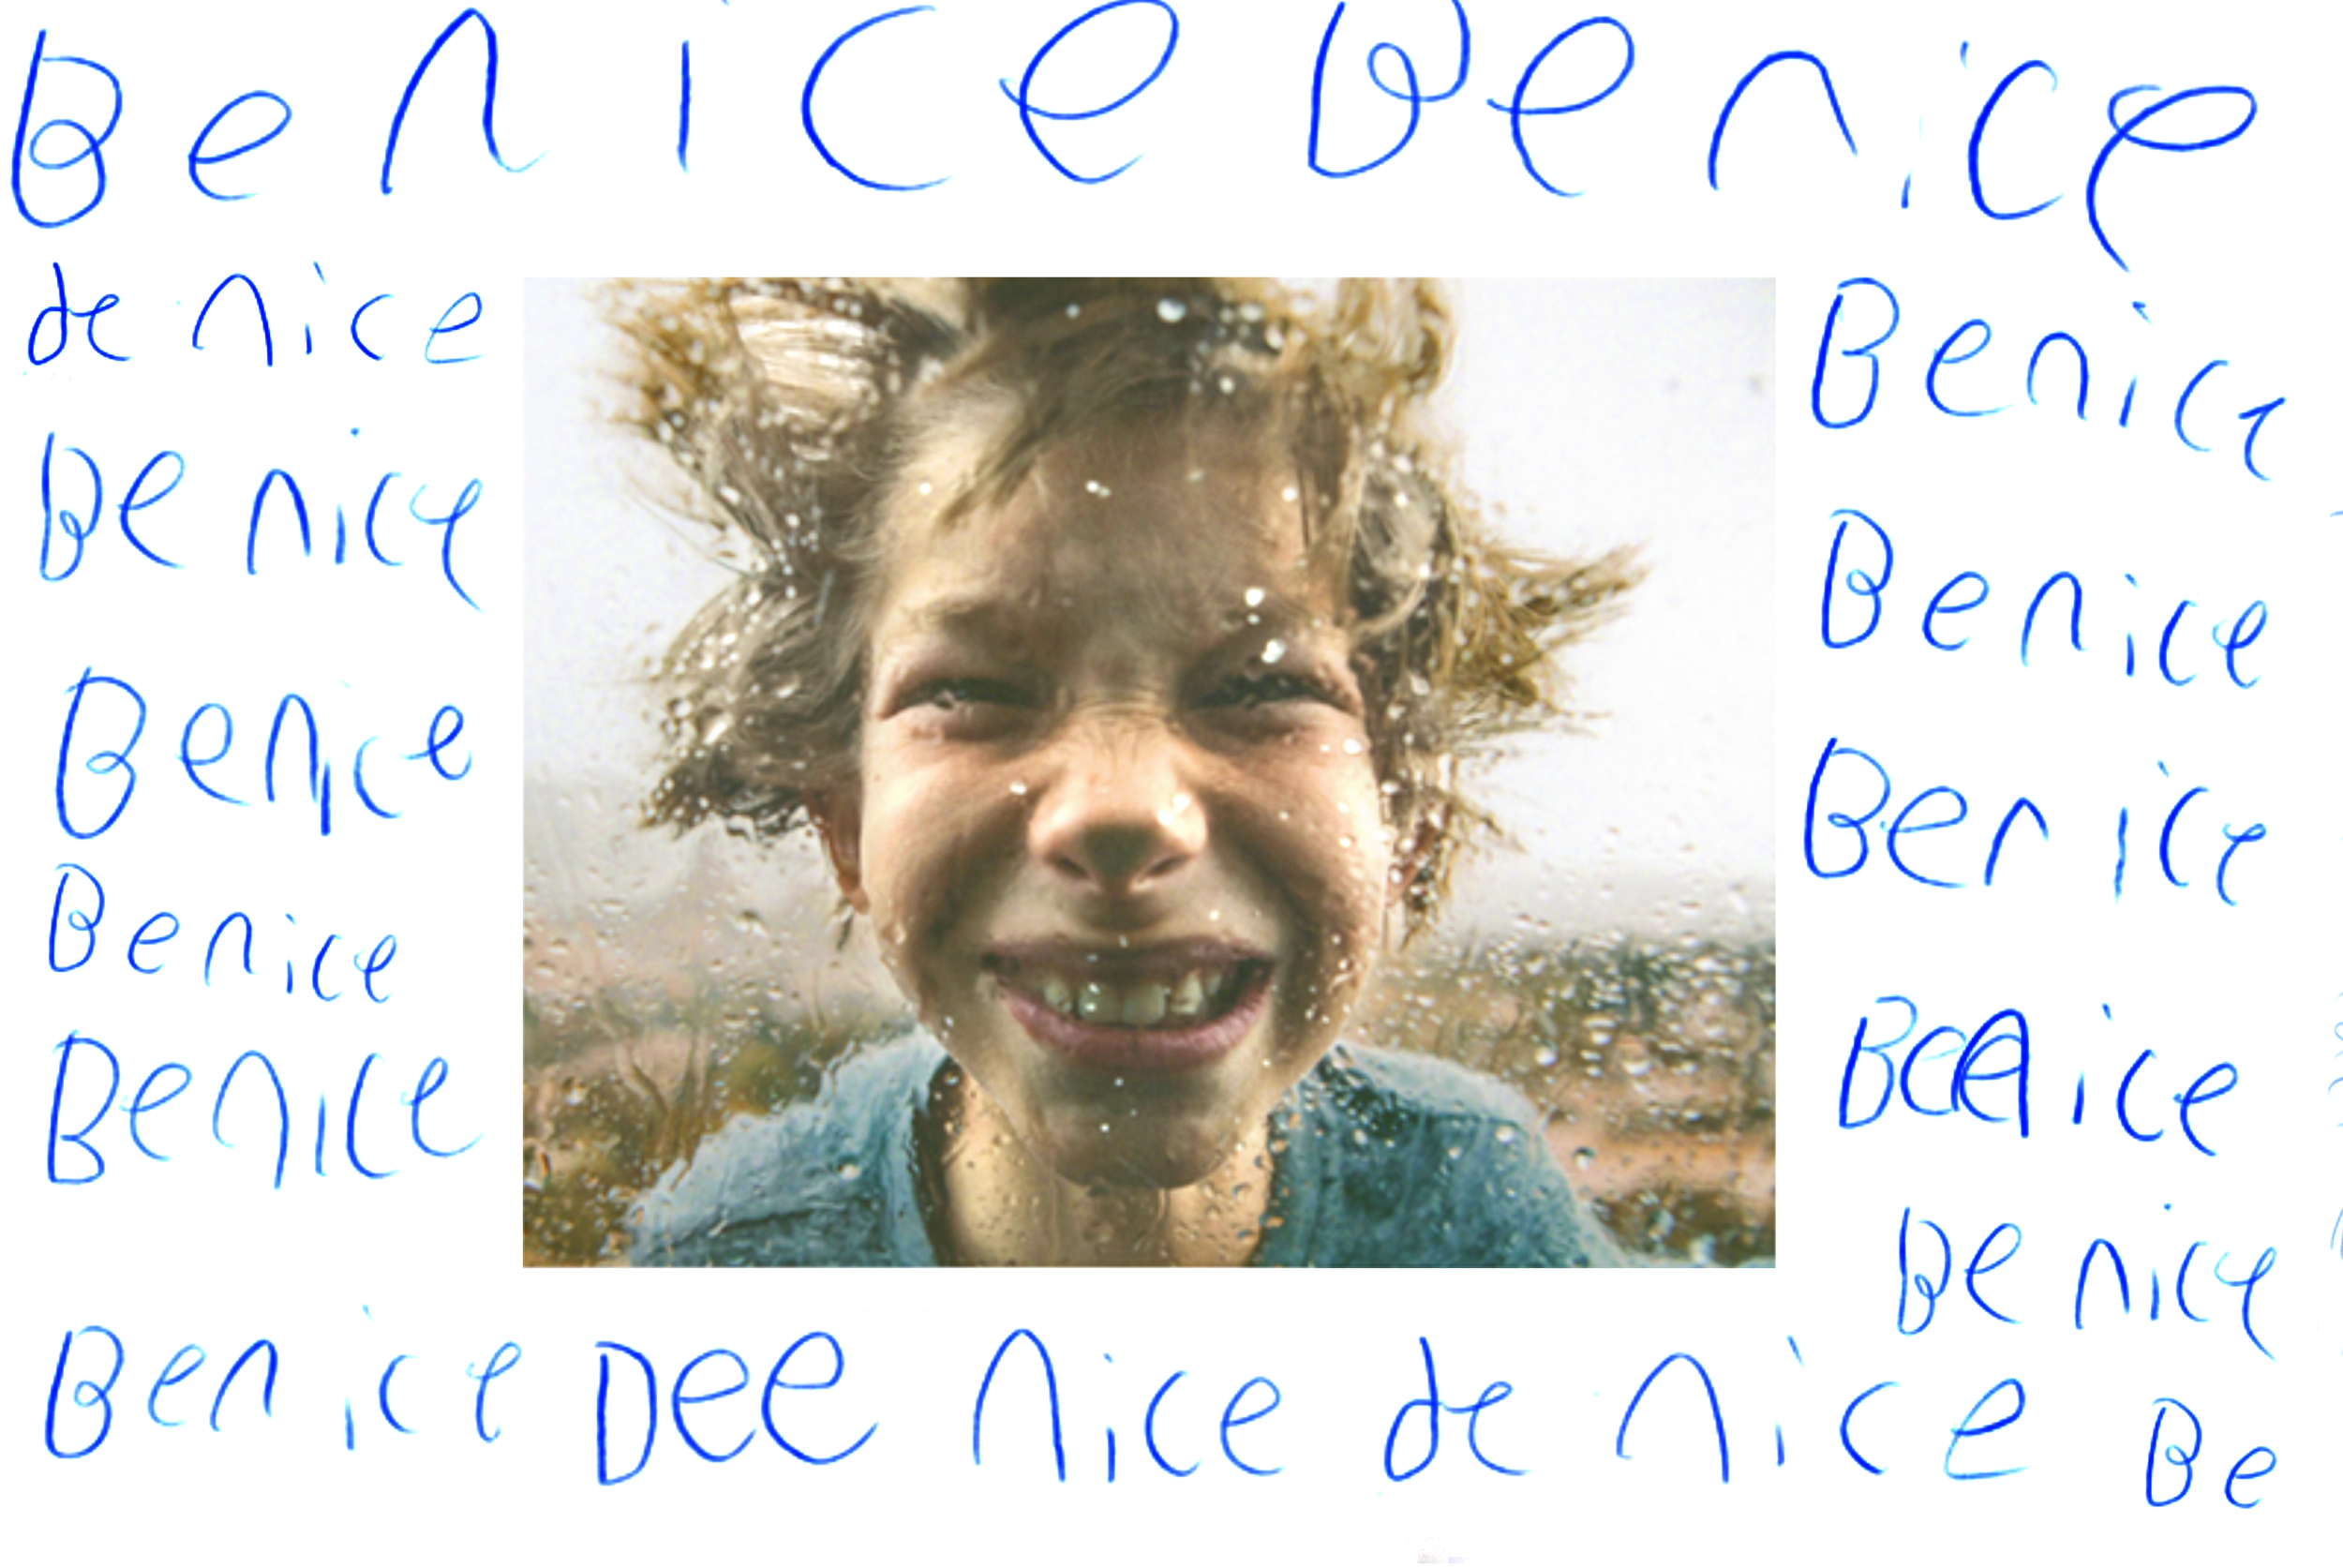 Be nice Be nice
de nice
Be nice
Be nice
Be nice
Be nice
Be nice
Be nice
Be nice
Be ice
Be nice
Be nice Dee nice de nice Be